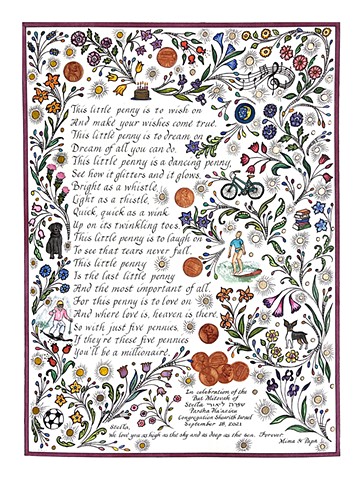 This little penny is to wish on
And make your wishes come true.
This little penny is to dream on
Dream of all you can do.
This little penny is a dancing penny,
See how it glitters and it glows.
Bright as a whistle,
Light as a thistle,
Quick, quick as a wink
Up on its twinkling toes.
This little penny is to laugh on
To see that tears never fall.
This little penny
Is the last little penny
And the most important of all.
For this penny is to love on
And where love is, heaven is there.
So with just five pennies,
If they're these five pennies
You'll be a millionaire.
In celebration of the
Bat Mitzvah of
Stella
Parsha Ha'azinu
Congregation Shearith Israel
September 18, 2021
Stella,
We love you as high as the sky and as deep as the sea. Forever.
Mima & Papa